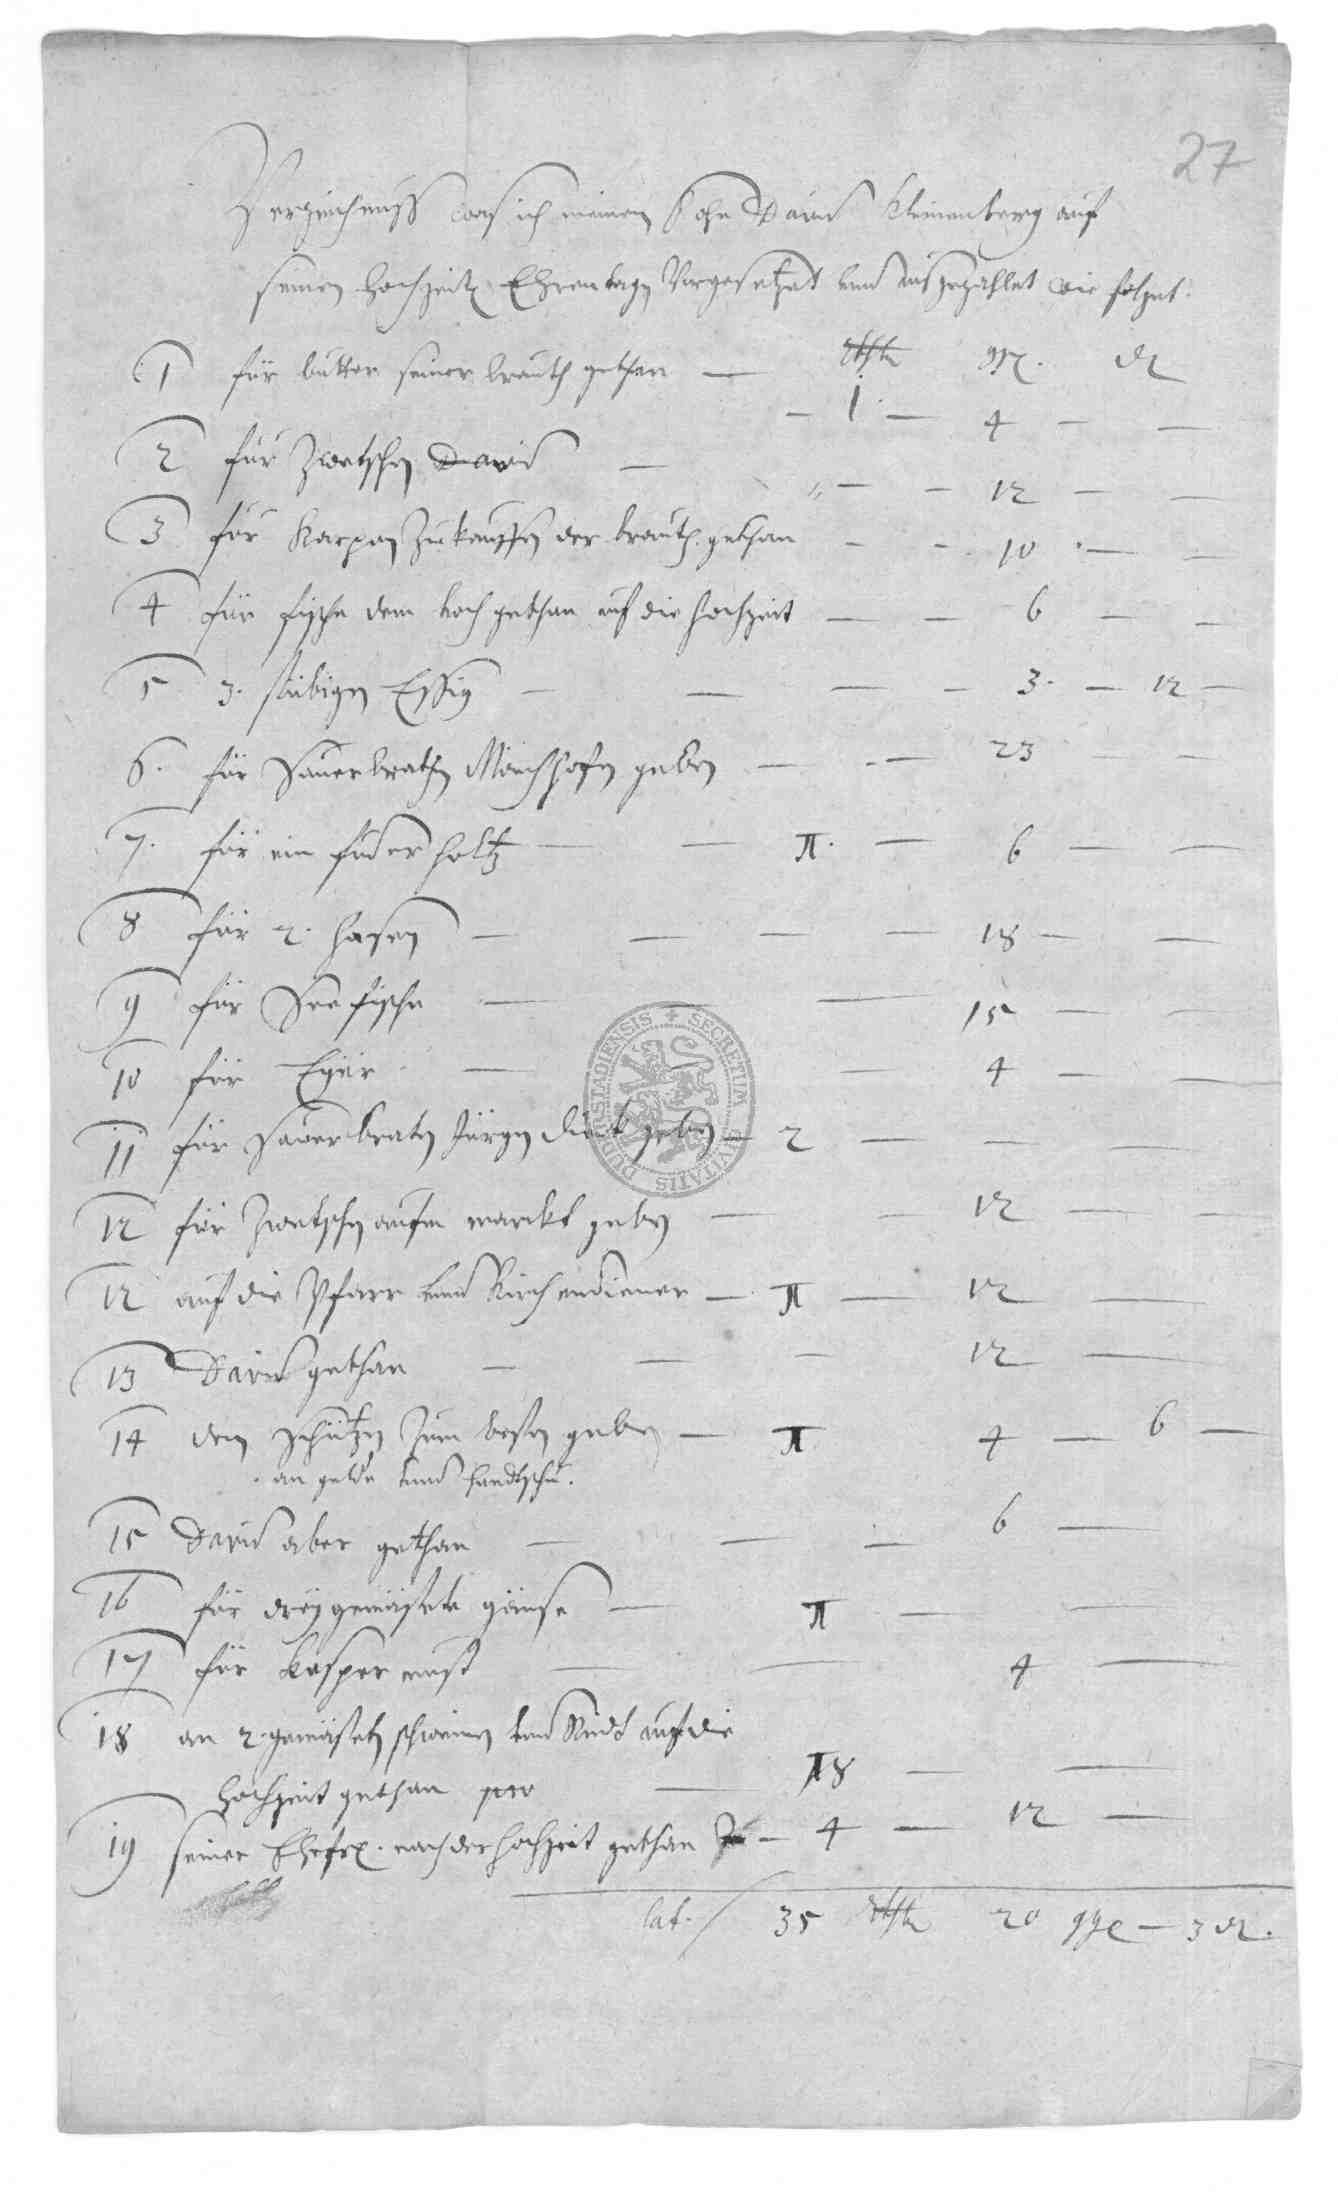 27
Verzeichnuss was ich meinem Sohn David Klinenberg auf
seinen hochzeit Ehrentagen Vorgesetzet und außgezahlet wie folget.
rthlr ggr. d
1 für butter seiner brauth gethan — 1 — 4 — —
2 für Zwetschen David — — — 12 — —
3 für Karpen Zukauffen der brauth gethan — — 10 — —
4 für fische dem koch gethan auf die hochzeit — — 6 — —
5 3. stübigen Essig — — — — 3. — 12 —
6. für Sauerbrathen geben — — 23 — —
7. für ein fuder holtz — — II. — 6 — —
8 für 2. hasen — — — — 18 — —
9 für See fische — — 15 — —
10 für Eyer — — — 4 — —
11 für Sauerbraten Jürgen geben — 2 — — —
12 für Zwetschen aufm marckt geben — — 12 — —
12 auf die Pfarr und Kirchendiener — II — 12 —
13 David gethan — — — 12 —
14 den Schützen Zum besten geben — II 4 — 6 —
an gelde und handtschu.
15 David aber gethan — — — 6 —
16 für drey gemästete gänse — II — —
17 für Kasper — — 4 —
18 an 2. gemästeten schweinen und Rindt auf die
hochzeit gethan pro — II8 — —
19 seiner Ehefr. nach der hochzeit gethan — 4 — 12 —
lat. / 35 rthlr 20 ggr — 3 d.
SECRETUM CIVITATIS DUDERSTADIENSIS